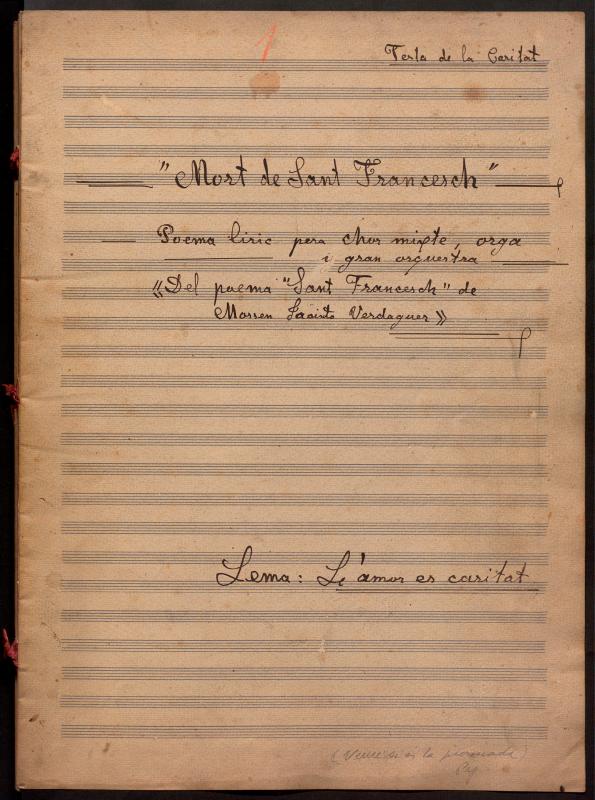 1
Festa de la Caritat
"Mort de Sant Francesch"
Poema liric pera chor mixte, orga
i gran orquestra
«Del poema "Sant Francesch" de
Mossen Jacinto Verdaguer»
Lema: L'amor es caritat
(Veure si es la premiada)